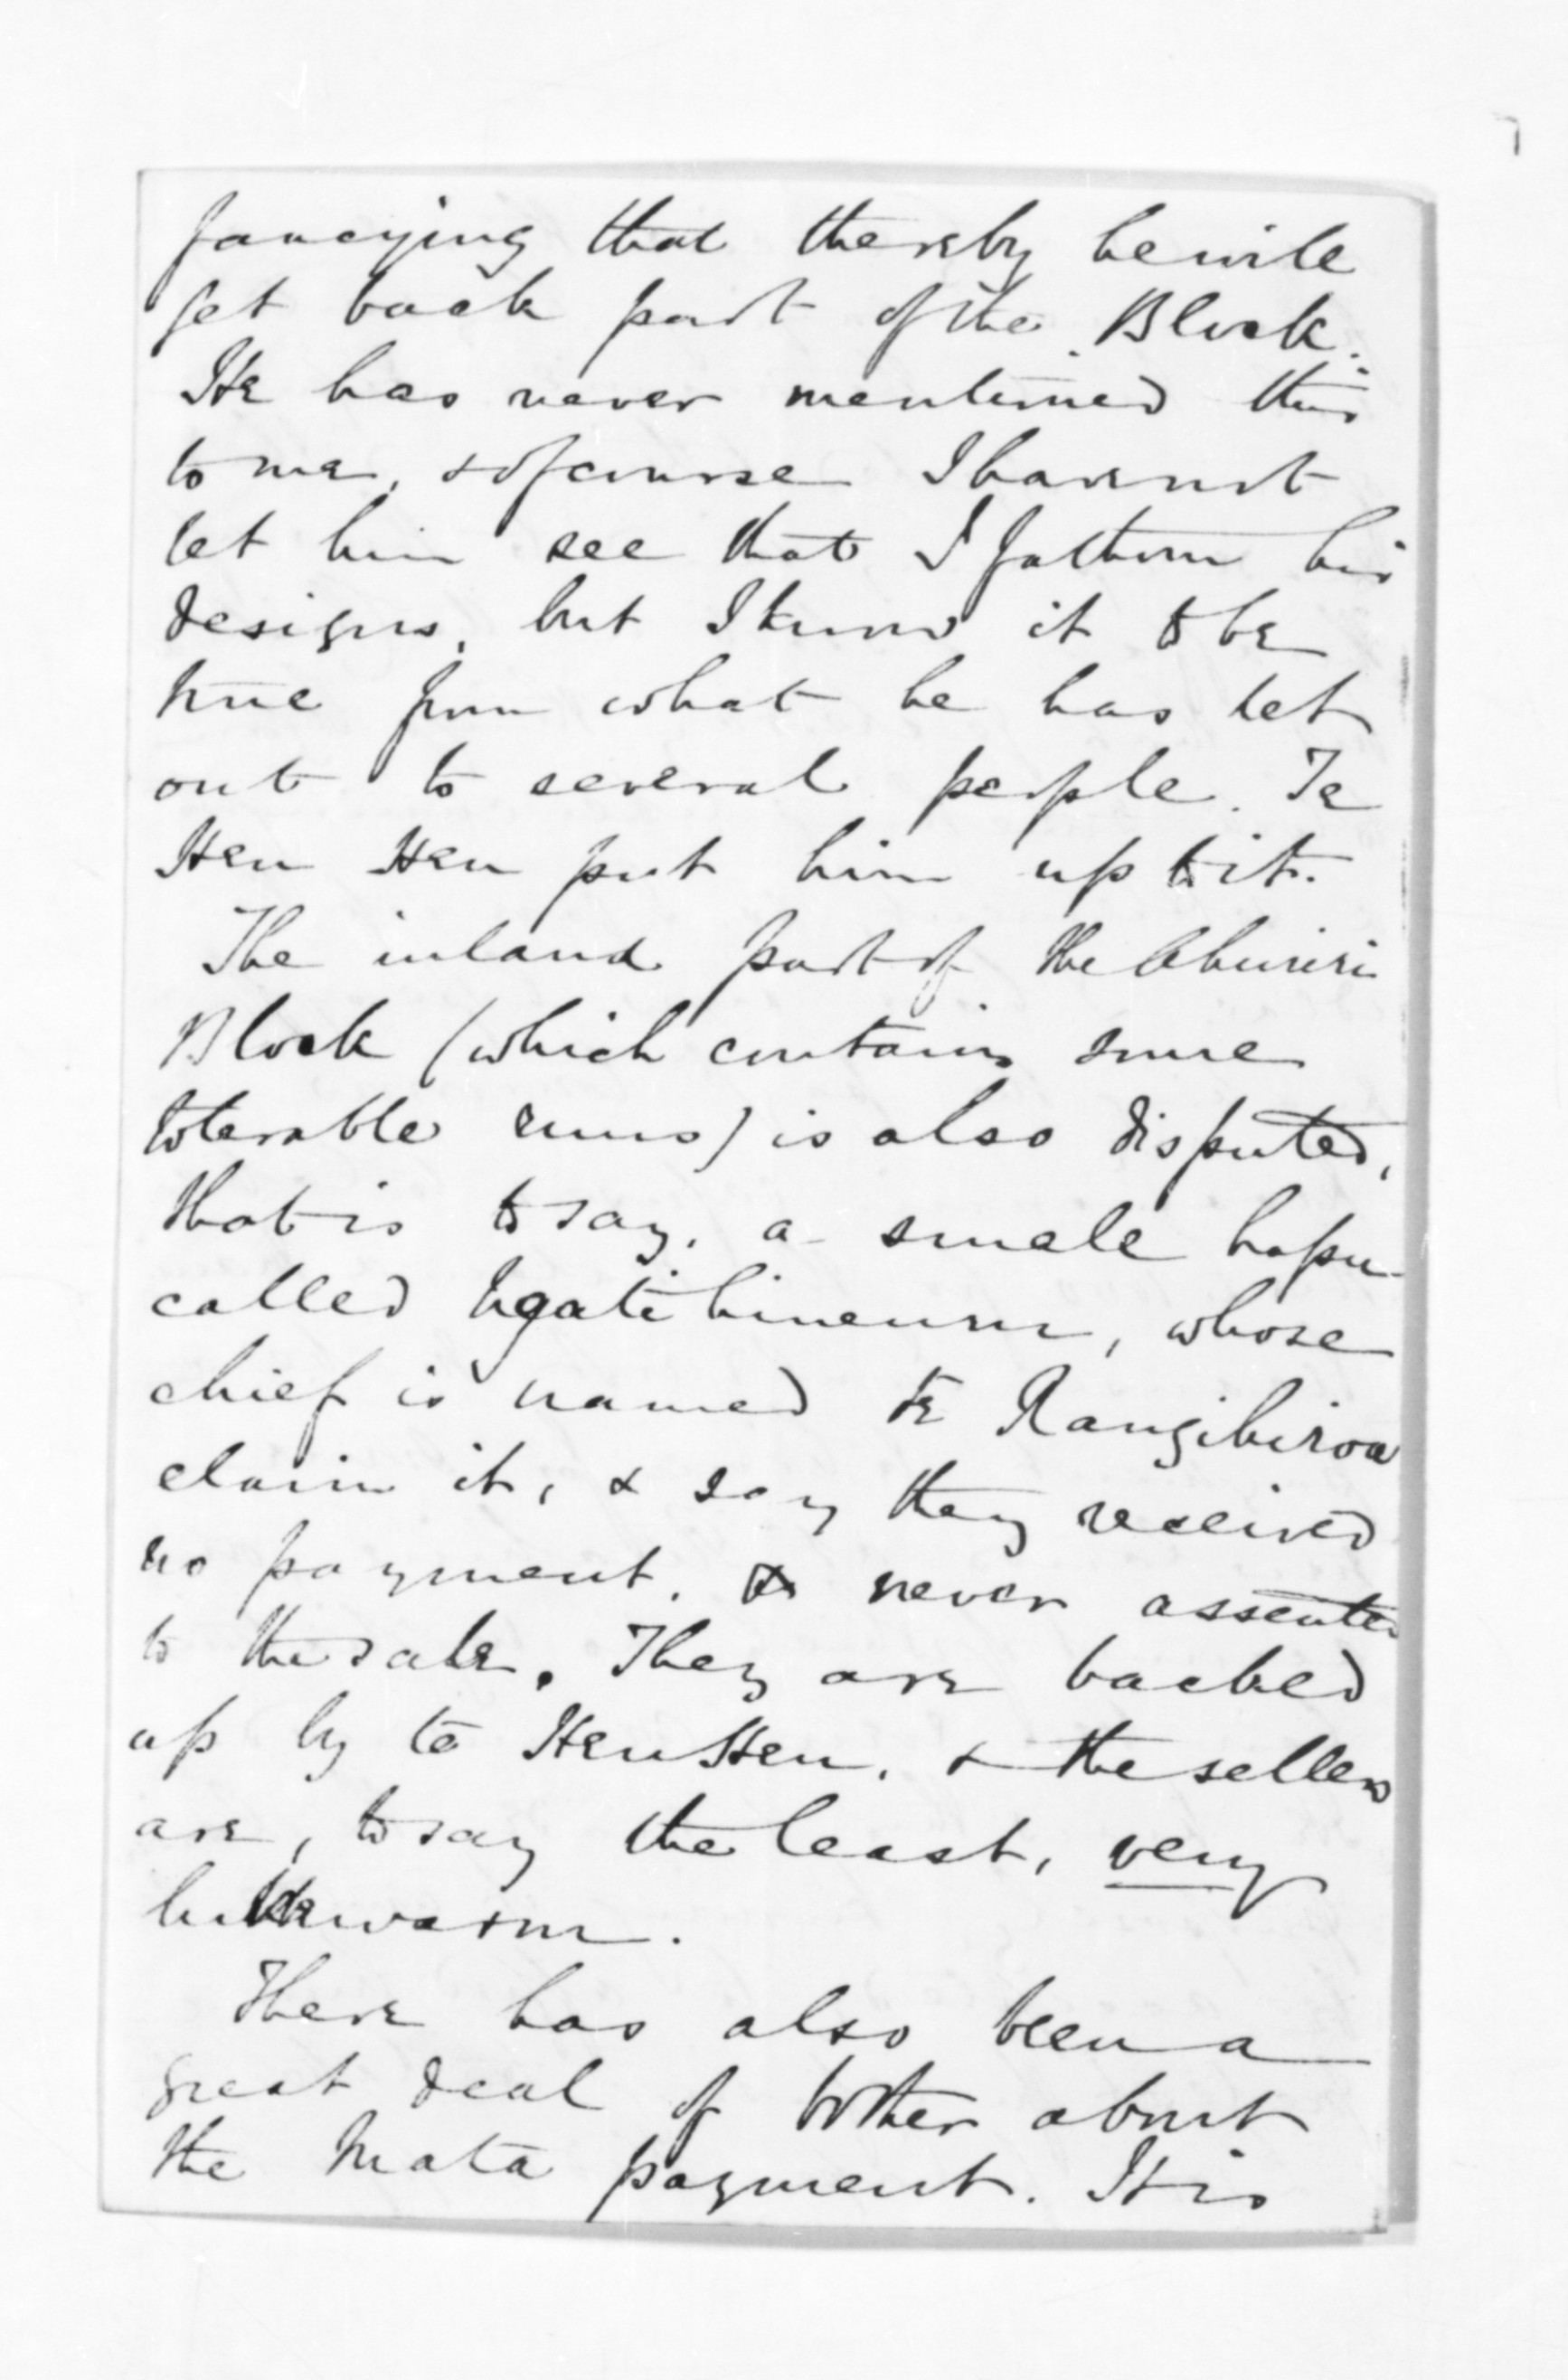 fancying that thereby he will
get back part of the Block.
He has never mentioned this
to me, & of course I have not
let him see that I fathom his
designs, but I know it to be
true from what he has let
out to several people. Te
Heu Heu put him up to it.
The inland part of the Ahuriri
Block (which contains some
tolerable runs) is also disputed,
that is to say, a small hapu
called Ngatihineuru, whose
chief is named te Rangihiroa
claim it, & say they received
no payment, & never assented
to the sale. They are backed
up by te Heu Heu, & the sellers
are, to say the least, very
lukewarm.
There has also been a
great deal of bother about
the Mata payment. It is